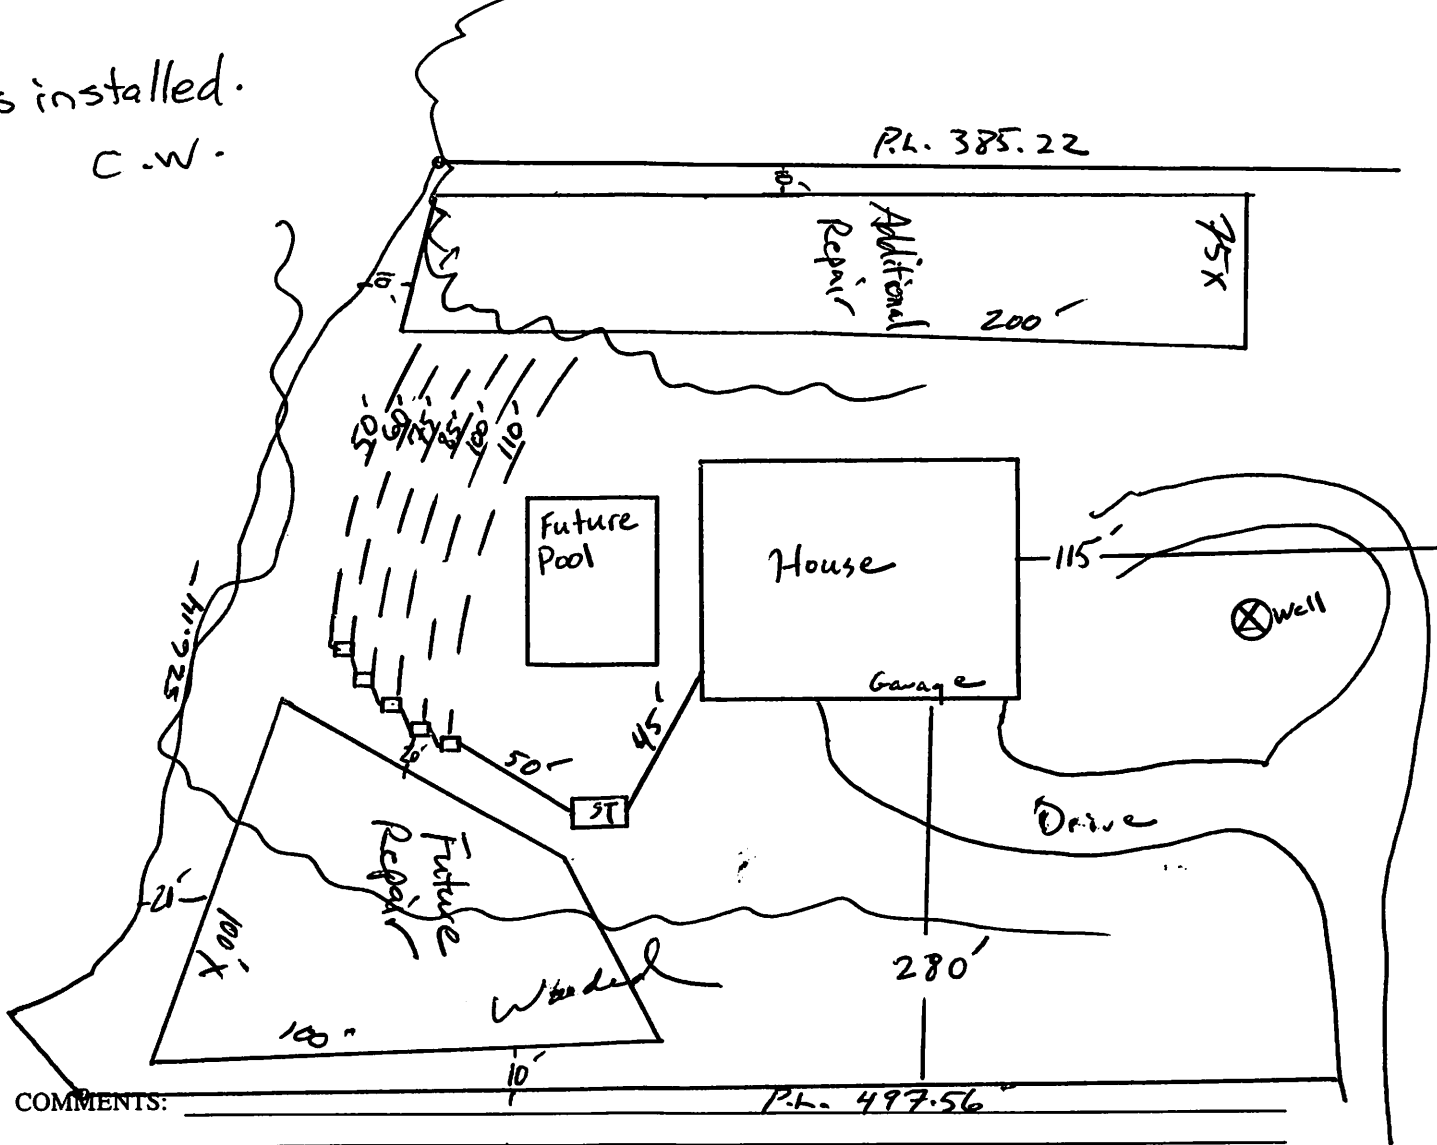 s installed.
C.W.
P.L. 385.22
10'
Additional
Repair
75 X
200'
10'
50' 60' 75' 85' 100' 110'
Future
Pool
House
115'
Well
Garage
526.14'
45'
20'
50'
ST
Drive
Future
Repair
20'
100' X
Wooded
280'
100'
10'
COMMENTS:
P.L. 497.56